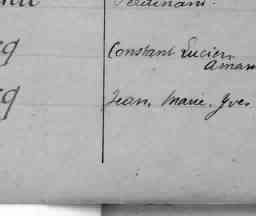 Ferdinand.
Constant Lucien
Aman
Jean, Marie, Yves